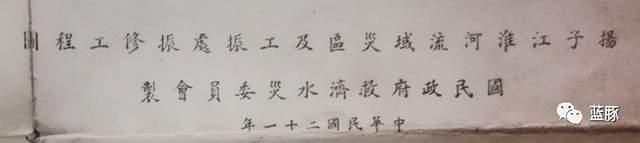 揚子江淮河流域災區及工振處振修工程圖
國民政府救濟水災委員會製
中華民國二十一年
蓝豚